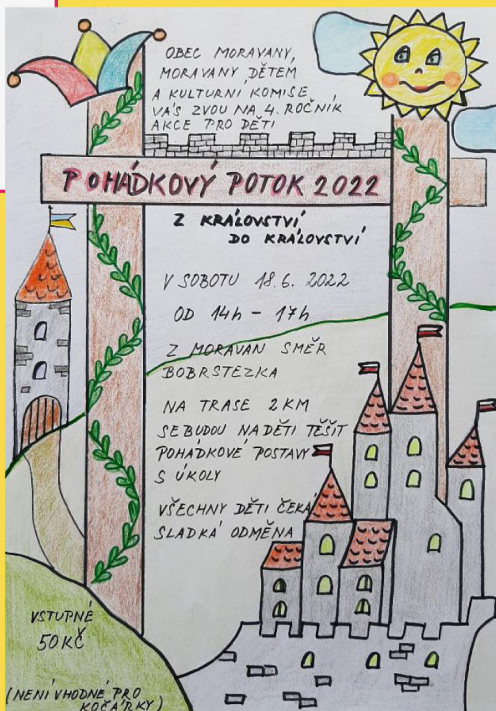 OBEC MORAVANY,
MORAVANY DĚTEM
A KULTURNÍ KOMISE
VÁS ZVOU NA 4. ROČNÍK
AKCE PRO DĚTI
POHÁDKOVÝ POTOK 2022
Z KRÁLOVSTVÍ
DO KRÁLOVSTVÍ
V SOBOTU 18.6. 2022
OD 14h - 17h
Z MORAVAN SMĚR
BOBRSTEZKA
NA TRASE 2 KM
SE BUDOU NA DĚTI TĚŠIT
POHÁDKOVÉ POSTAVY
S ÚKOLY
VŠECHNY DĚTI ČEKÁ
SLADKÁ ODMĚNA
VSTUPNÉ
50 KČ
(NENÍ VHODNÉ PRO
KOČÁRKY)